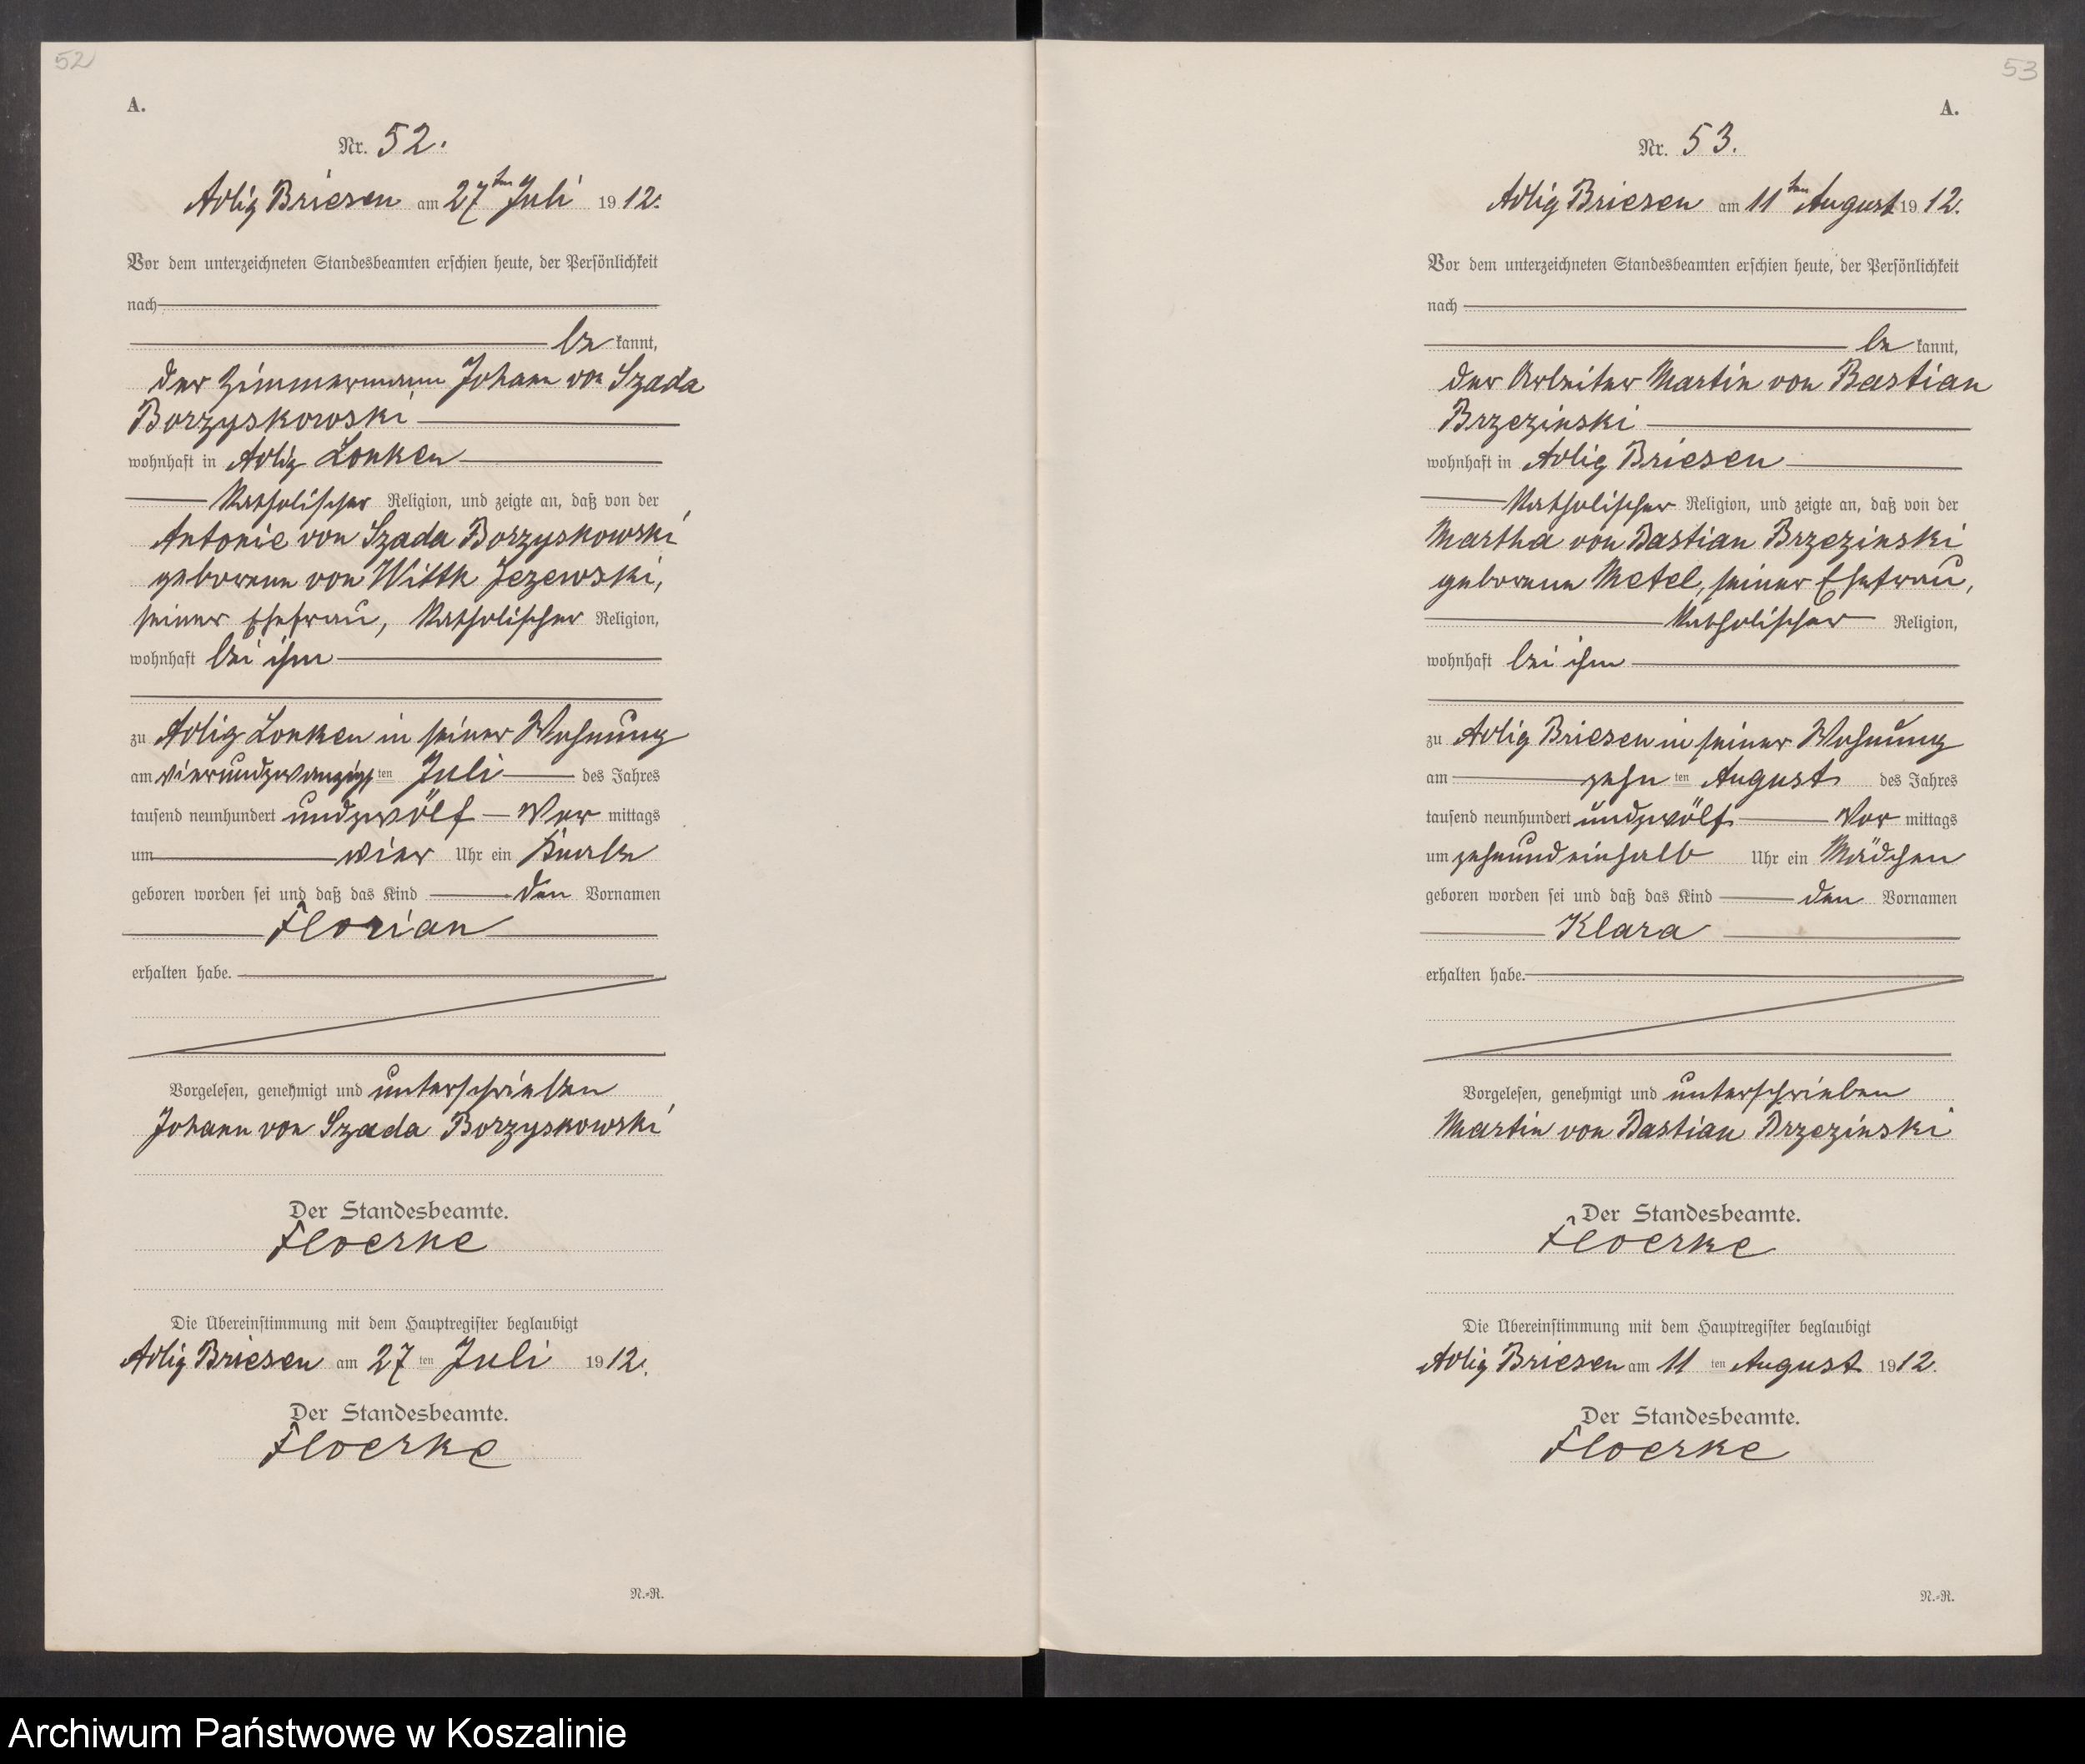 52
A.
Nr. 52.
Adlig Briesen am 27ten Juli 1912.
Vor dem unterzeichneten Standesbeamten erschien heute, der Persönlichkeit
nach
be kannt,
der Zimmermann Johann von Szada
Borzyskowski
wohnhaft in Adlig Lonken
katholischer Religion, und zeigte an, daß von der
Antonie von Szada Borzyskowski
geborenen von Wittk Jezewski,
seiner Ehefrau, katholischer Religion,
wohnhaft bei ihm
zu Adlig Lonken in seiner Wohnung
am vierundzwanzigsten Juli des Jahres
tausend neunhundert undzwölf Vor mittags
um vier Uhr ein Knabe
geboren worden sei und daß das Kind den Vornamen
Florian
erhalten habe.
Vorgelesen, genehmigt und unterschrieben
Johann von Szada Borzyskowski
Der Standesbeamte.
Floerke
Die Übereinstimmung mit dem Hauptregister beglaubigt
Adlig Briesen am 27 ten Juli 1912.
Der Standesbeamte.
Floerke
N.-R.
53
A.
Nr. 53.
Adlig Briesen am 11ten August 1912.
Vor dem unterzeichneten Standesbeamten erschien heute, der Persönlichkeit
nach
be kannt,
der Arbeiter Martin von Bastian
Brzezinski
wohnhaft in Adlig Briesen
katholischer Religion, und zeigte an, daß von der
Martha von Bastian Brzezinski
geborenen Metel, seiner Ehefrau,
katholischer Religion,
wohnhaft bei ihm
zu Adlig Briesen in seiner Wohnung
am zehn ten August des Jahres
tausend neunhundert undzwölf Vor mittags
um zehnundeinhalb Uhr ein Mädchen
geboren worden sei und daß das Kind den Vornamen
Klara
erhalten habe.
Vorgelesen, genehmigt und unterschrieben
Martin von Bastian Brzezinski
Der Standesbeamte.
Floerke
Die Übereinstimmung mit dem Hauptregister beglaubigt
Adlig Briesen am 11 ten August 1912.
Der Standesbeamte.
Floerke
N.-R.
Archiwum Państwowe w Koszalinie